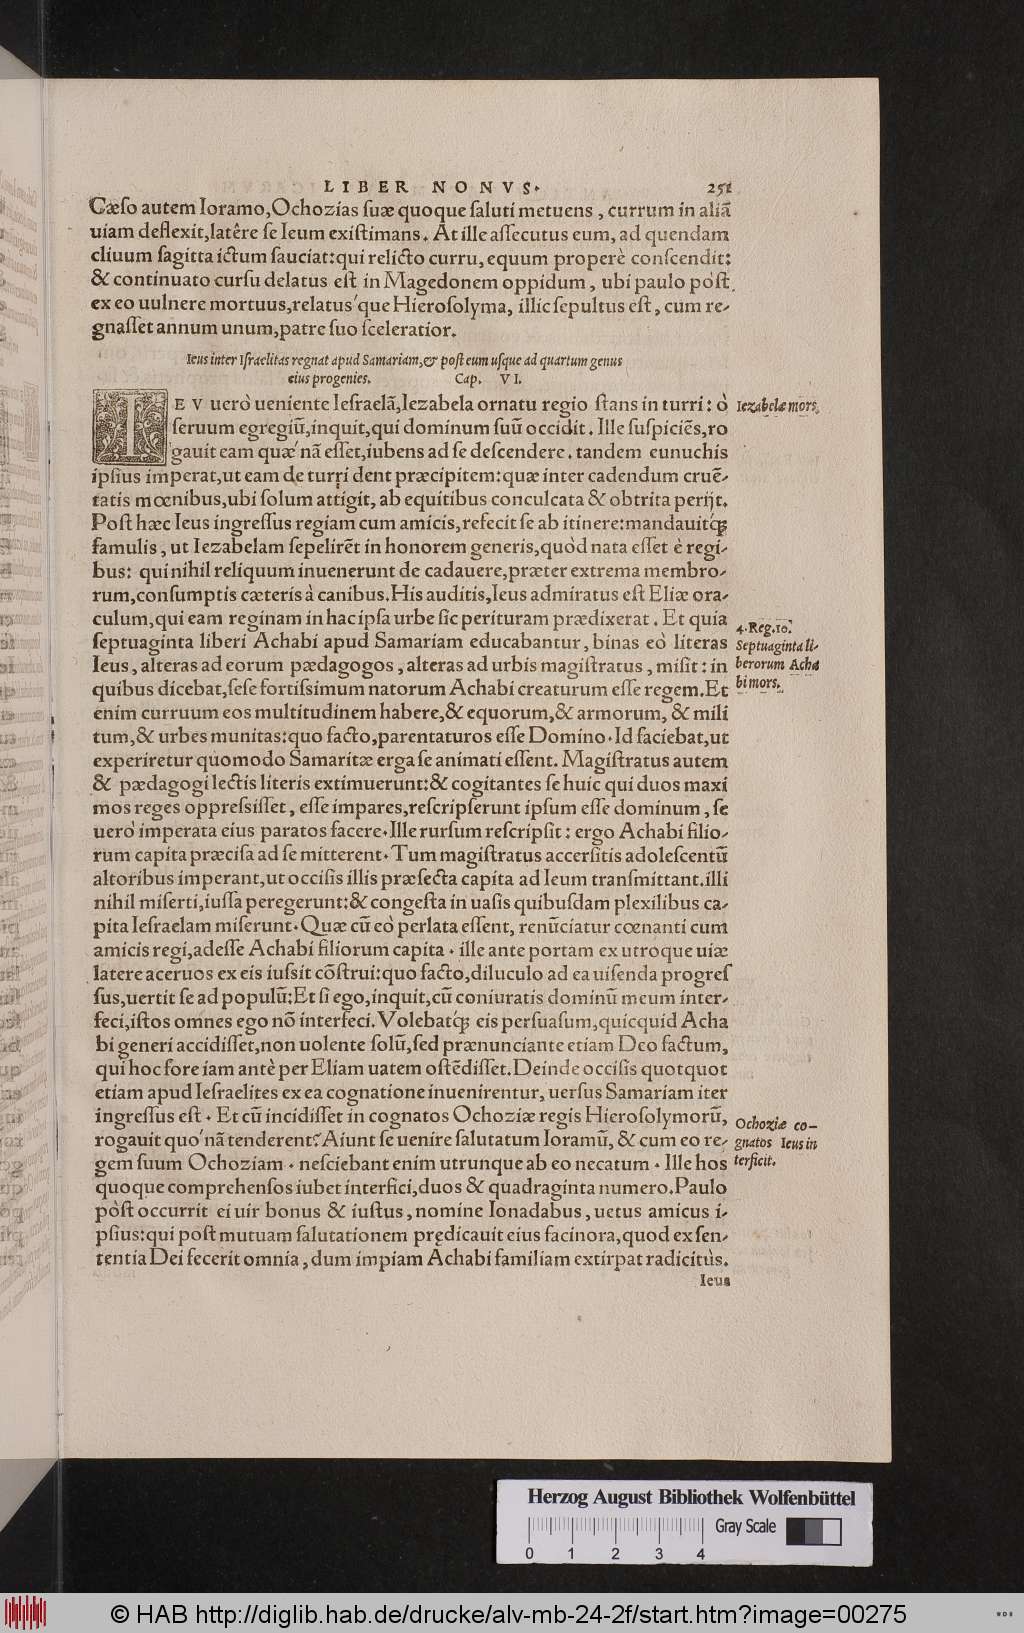 LIBER NONVS. 251
Cæſo autem Ioramo, Ochozias ſuæ quoque ſaluti metuens, currum in aliā
uiam deflexit, latêre ſe Ieum exiſtimans. At ille aſſecutus eum, ad quendam
cliuum ſagitta ictum ſauciat: qui relicto curru, equum properè conſcendit:
& continuato curſu delatus eſt in Magedonem oppidum, ubi paulo pòſt
ex eo uulnere mortuus, relatus´que Hieroſolyma, illic ſepultus eſt, cum re-
gnaſſet annum unum, patre ſuo ſceleratior.
Ieus inter Iſraelitas regnat apud Samariam, & poſt eum uſque ad quartum genus
eius progenies. Cap. VI.
IEV uerò ueniente Ieſraelā, Iezabela ornatu regio ſtans in turri: ò
ſeruum egregiū, inquit, qui dominum ſuū occidit. Ille ſuſpiciēs, ro
gauit eam quæ´nā eſſet, iubens ad ſe deſcendere. tandem eunuchis
ipſius imperat, ut eam de turri dent præcipitem: quæ inter cadendum cruē-
tatis mœnibus, ubi ſolum attigit, ab equitibus conculcata & obtrita perijt.
Poſt hæc Ieus ingreſſus regiam cum amicis, refecit ſe ab itinere: mandauitq́;
famulis, ut Iezabelam ſepelirēt in honorem generis, quòd nata eſſet è regi-
bus: qui nihil reliquum inuenerunt de cadauere, præter extrema membro-
rum, conſumptis cæteris à canibus. His auditis, Ieus admiratus eſt Eliæ ora-
culum, qui eam reginam in hac ipſa urbe ſic perituram prædixerat. Et quia
ſeptuaginta liberi Achabi apud Samariam educabantur, binas eò literas
Ieus, alteras ad eorum pædagogos, alteras ad urbis magiſtratus, miſit: in
quibus dicebat, ſeſe fortiſsimum natorum Achabi creaturum eſſe regem. Et
enim curruum eos multitudinem habere, & equorum, & armorum, & mili
tum, & urbes munitas: quo facto, parentaturos eſſe Domino. Id faciebat, ut
experiretur quomodo Samaritæ erga ſe animati eſſent. Magiſtratus autem
& pædagogi lectis literis extimuerunt: & cogitantes ſe huic qui duos maxi
mos reges oppreſsiſſet, eſſe impares, reſcripſerunt ipſum eſſe dominum, ſe
uerò imperata eius paratos facere. Ille rurſum reſcripſit: ergo Achabi filio-
rum capita præciſa ad ſe mitterent. Tum magiſtratus accerſitis adoleſcentū
altoribus imperant, ut occiſis illis præſecta capita ad Ieum tranſmittant. illi
nihil miſerti, iuſſa peregerunt: & congeſta in uaſis quibuſdam plexilibus ca-
pita Ieſraelam miſerunt. Quæ cū eò perlata eſſent, renūciatur cœnanti cum
amicis regi, adeſſe Achabi filiorum capita. ille ante portam ex utroque uiæ
latere aceruos ex eis iuſsit cōſtrui: quo facto, diluculo ad ea uiſenda progreſ
ſus, uertit ſe ad populū: Et ſi ego, inquit, cū coniuratis dominū meum inter-
feci, iſtos omnes ego nō interfeci. Volebatq́; eis perſuaſum, quicquid Acha
bi generi accidiſſet, non uolente ſolū, ſed prænunciante etiam Deo factum,
qui hoc fore iam antè per Eliam uatem oſtēdiſſet. Deinde occiſis quotquot
etiam apud Ieſraelites ex ea cognatione inuenirentur, uerſus Samariam iter
ingreſſus eſt. Et cū incidiſſet in cognatos Ochoziæ regis Hieroſolymorū,
rogauit quo´nā tenderent? Aiunt ſe uenire ſalutatum Ioramū, & cum eo re-
gem ſuum Ochoziam. neſciebant enim utrunque ab eo necatum. Ille hos
quoque comprehenſos iubet interfici, duos & quadraginta numero. Paulo
pòſt occurrit ei uir bonus & iuſtus, nomine Ionadabus, uetus amicus i-
pſius: qui poſt mutuam ſalutationem prędicauit eius facinora, quod ex ſen-
tentia Dei fecerit omnia, dum impiam Achabi familiam extirpat radicitùs.
Ieus
Iezabelæ mors.
4. Reg. 10.
Septuaginta li-
berorum Acha
bi mors.
Ochoziæ co-
gnatos Ieus in
terficit.
Herzog August Bibliothek Wolfenbüttel
Gray Scale
0 1 2 3 4
© HAB http://diglib.hab.de/drucke/alv-mb-24-2f/start.htm?image=00275